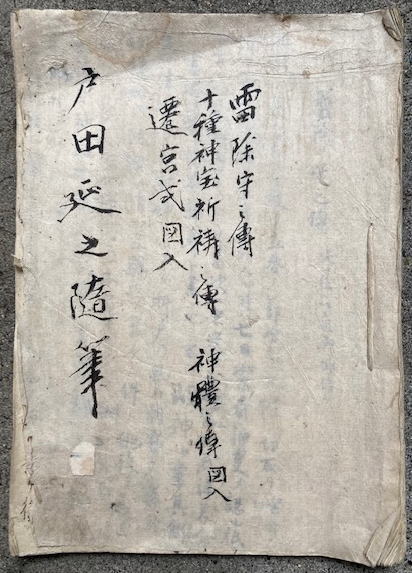 雷除守之傳
十種神宝祈祷之傳　神體之傳図入
遷宮式図入
戸田延之隨筆